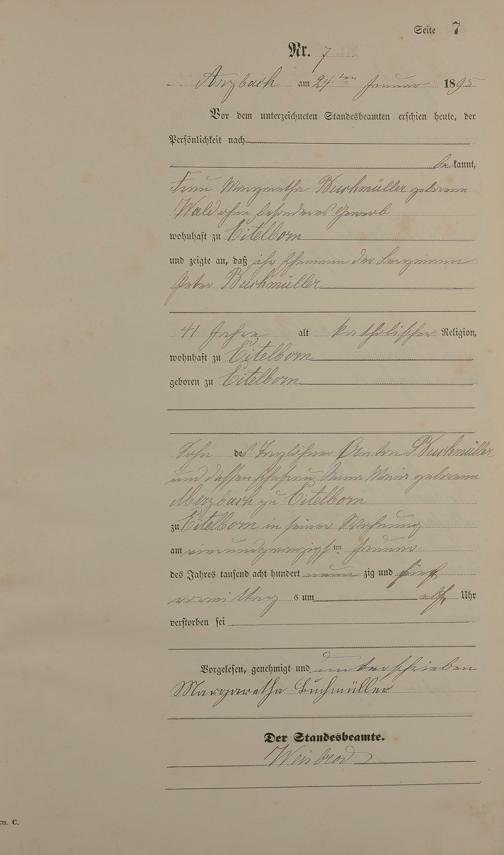 Seite 7
Nr. 7
Arzbach am 24ten Januar 1895
Vor dem unterzeichneten Standesbeamten erschien heute, der
Persönlichkeit nach
bekannt,
Frau Margaretha Buchmüller geborene
Wald ohne besonderes Gewerb
wohnhaft zu Eitelborn
und zeigte an, daß ihr Ehemann der Bergmann
Peter Buchmüller
41 Jahre alt katholischer Religion,
wohnhaft zu Eitelborn
geboren zu Eitelborn
Sohn des Taglöhner Anton Buchmüller
und dessen Ehefrau Anna Maria geborene
zu Eitelborn
zu Eitelborn in seiner Wohnung
am vierundzwanzigsten Januar
des Jahres tausend acht hundert neunzig und fünf
vormittags um elf Uhr
verstorben sei
Vorgelesen, genehmigt und unterschrieben
Margaretha Buchmüller
Der Standesbeamte.
Weisbrod
C.